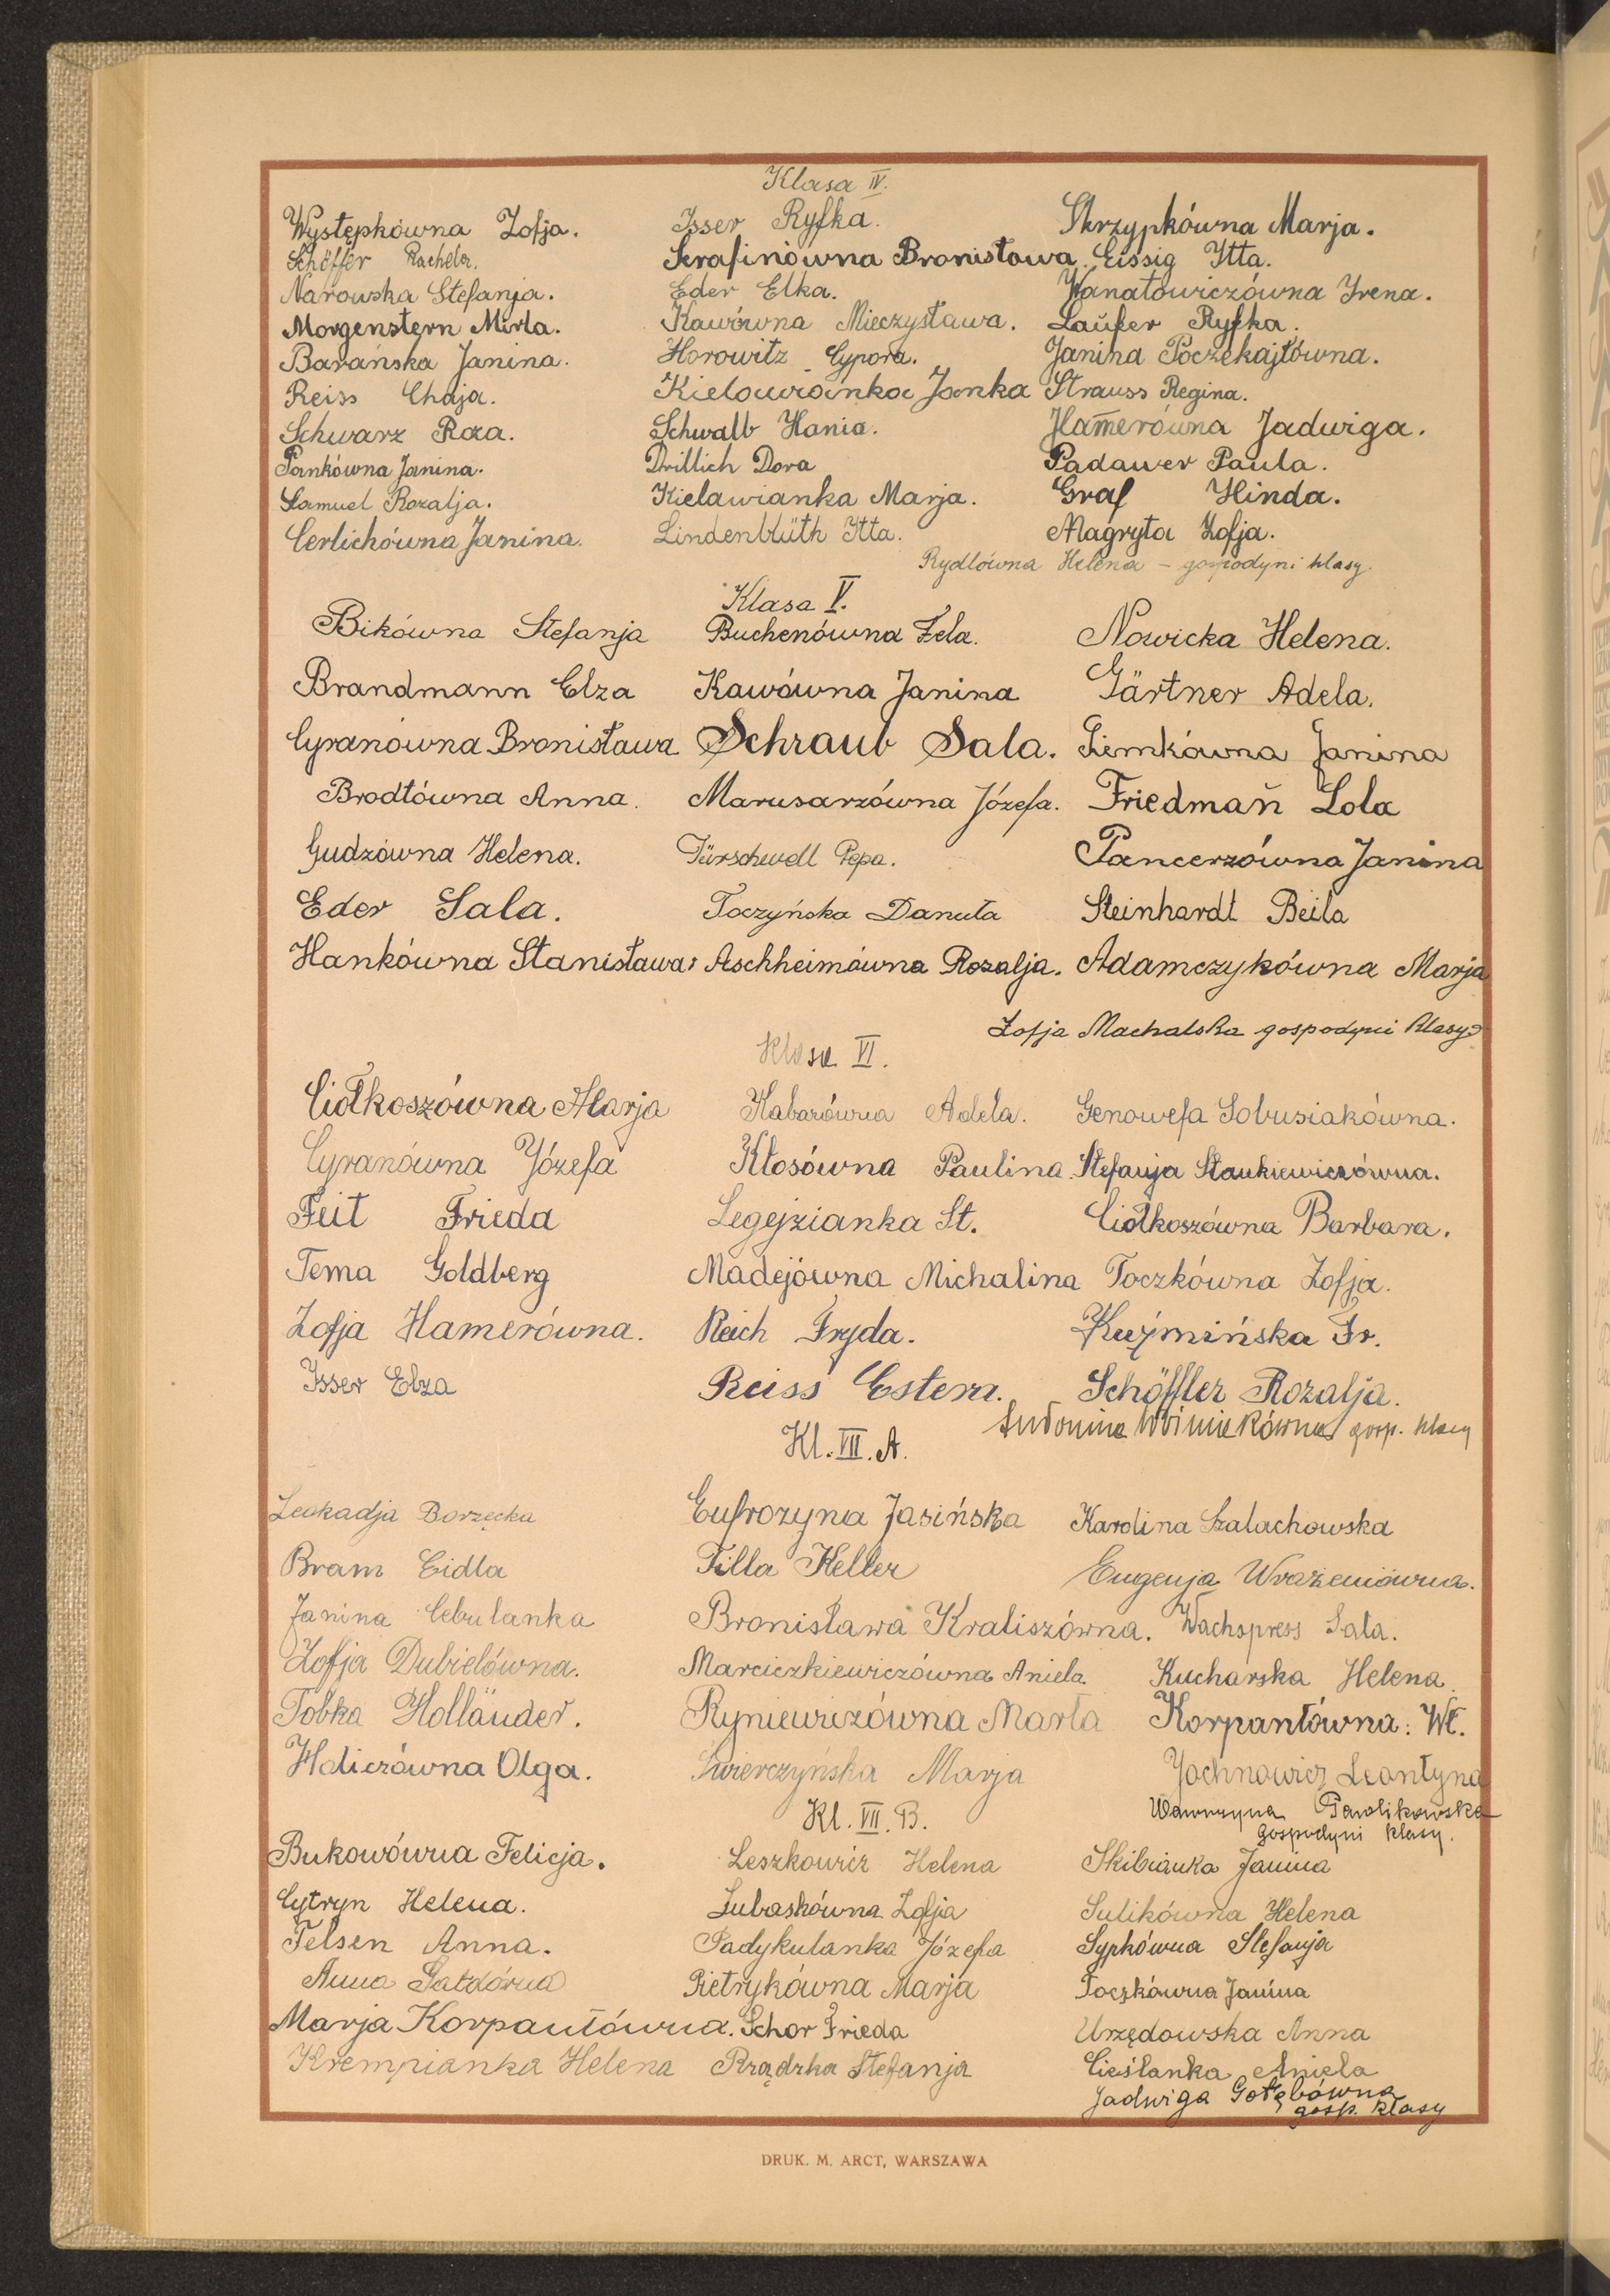 Klasa IV.
Występkówna Zofja. Isser Ryfka. Skrzypkówna Marja.
Schöffer Rachela. Serafinówna Bronisława. Eissig Itta.
Narowska Stefanja. Eder Elka. Wanatowiczówna Irena.
Morgenstern Mirla. Kawówna Mieczysława. Laufer Ryfka.
Barańska Janina. Horowitz Cypora. Janina Poczekajłówna.
Reiss Chaja. Kielawianka Janka Strauss Regina.
Schwarz Roza. Schwalb Hania. Hamerówna Jadwiga.
Pankówna Janina. Drillich Dora Padawer Paula.
Samuel Rozalja. Kielawianka Marja. Graf Hinda.
Cerlichówna Janina. Lindenblüth Itta. Magryta Zofja.
Rydlówna Helena – gospodyni klasy.
Klasa V.
Bikówna Stefanja Buchenówna Fela. Nowicka Helena.
Brandmann Elza Kawówna Janina Gärtner Adela.
Cyranówna Bronisława Schraub Sala. Ziemkówna Janina
Brodtówna Anna. Marusarzówna Józefa. Friedmañ Lola
Gudzówna Helena. Türschwell Pepa. Pancerzówna Janina
Eder Sala. Toczyńska Danuta Steinhardt Beila
Hankówna Stanisława. Aschheimówna Rozalja. Adamczykówna Marja
Zofja Machalska gospodyni klasy
Klasa VI.
Ciołkoszówna Marja Kabarówna Adela. Genowefa Sobusiakówna.
Cyranówna Józefa Kłosówna Paulina. Stefanja Stankiewiczówna.
Feit Frieda Legejzianka St. Ciołkoszówna Barbara.
Tema Goldberg Madejówna Michalina Toczkówna Zofja.
Zofja Hamerówna. Reich Fryda. Kuźmińska Fr.
Isser Elza Reiss Estera. Schöffler Rozalja.
gosp. klasy
Kl. VII. A.
Leokadja Borzęcka Eufrozyna Jasińska Karolina Szalachowska
Bram Eidla Tilla Keller Eugenja Wrażeniówna.
Janina Cebulanka Bronisława Kraliszówna. Wachspress Sala.
Zofja Dubielówna. Marcickiewiczówna Aniela. Kucharska Helena.
Tobka Holländer. Ryniewiczówna Marta Korpantówna: Wł.
Holiczówna Olga. Świerczyńska Marja Jochnowicz Leontyna
Wawrzyna Pawlikowska
gospodyni klasy.
Kl. VII. B.
Bukowówna Felicja. Leszkowicz Helena Skibianka Janina
Cytryn Helena. Lubaskówna Zofja Sulikówna Helena
Felsen Anna. Padykulanka Józefa Sypkówna Stefanja
Anna Gałdówna Pietrykówna Marja Toczkówna Janina
Marja Korpantówna. Schor Frieda Urzędowska Anna
Krempianka Helena Rządzka Stefanja Cieślanka Aniela
Jadwiga Gołębówna
gosp. klasy
DRUK. M. ARCT, WARSZAWA